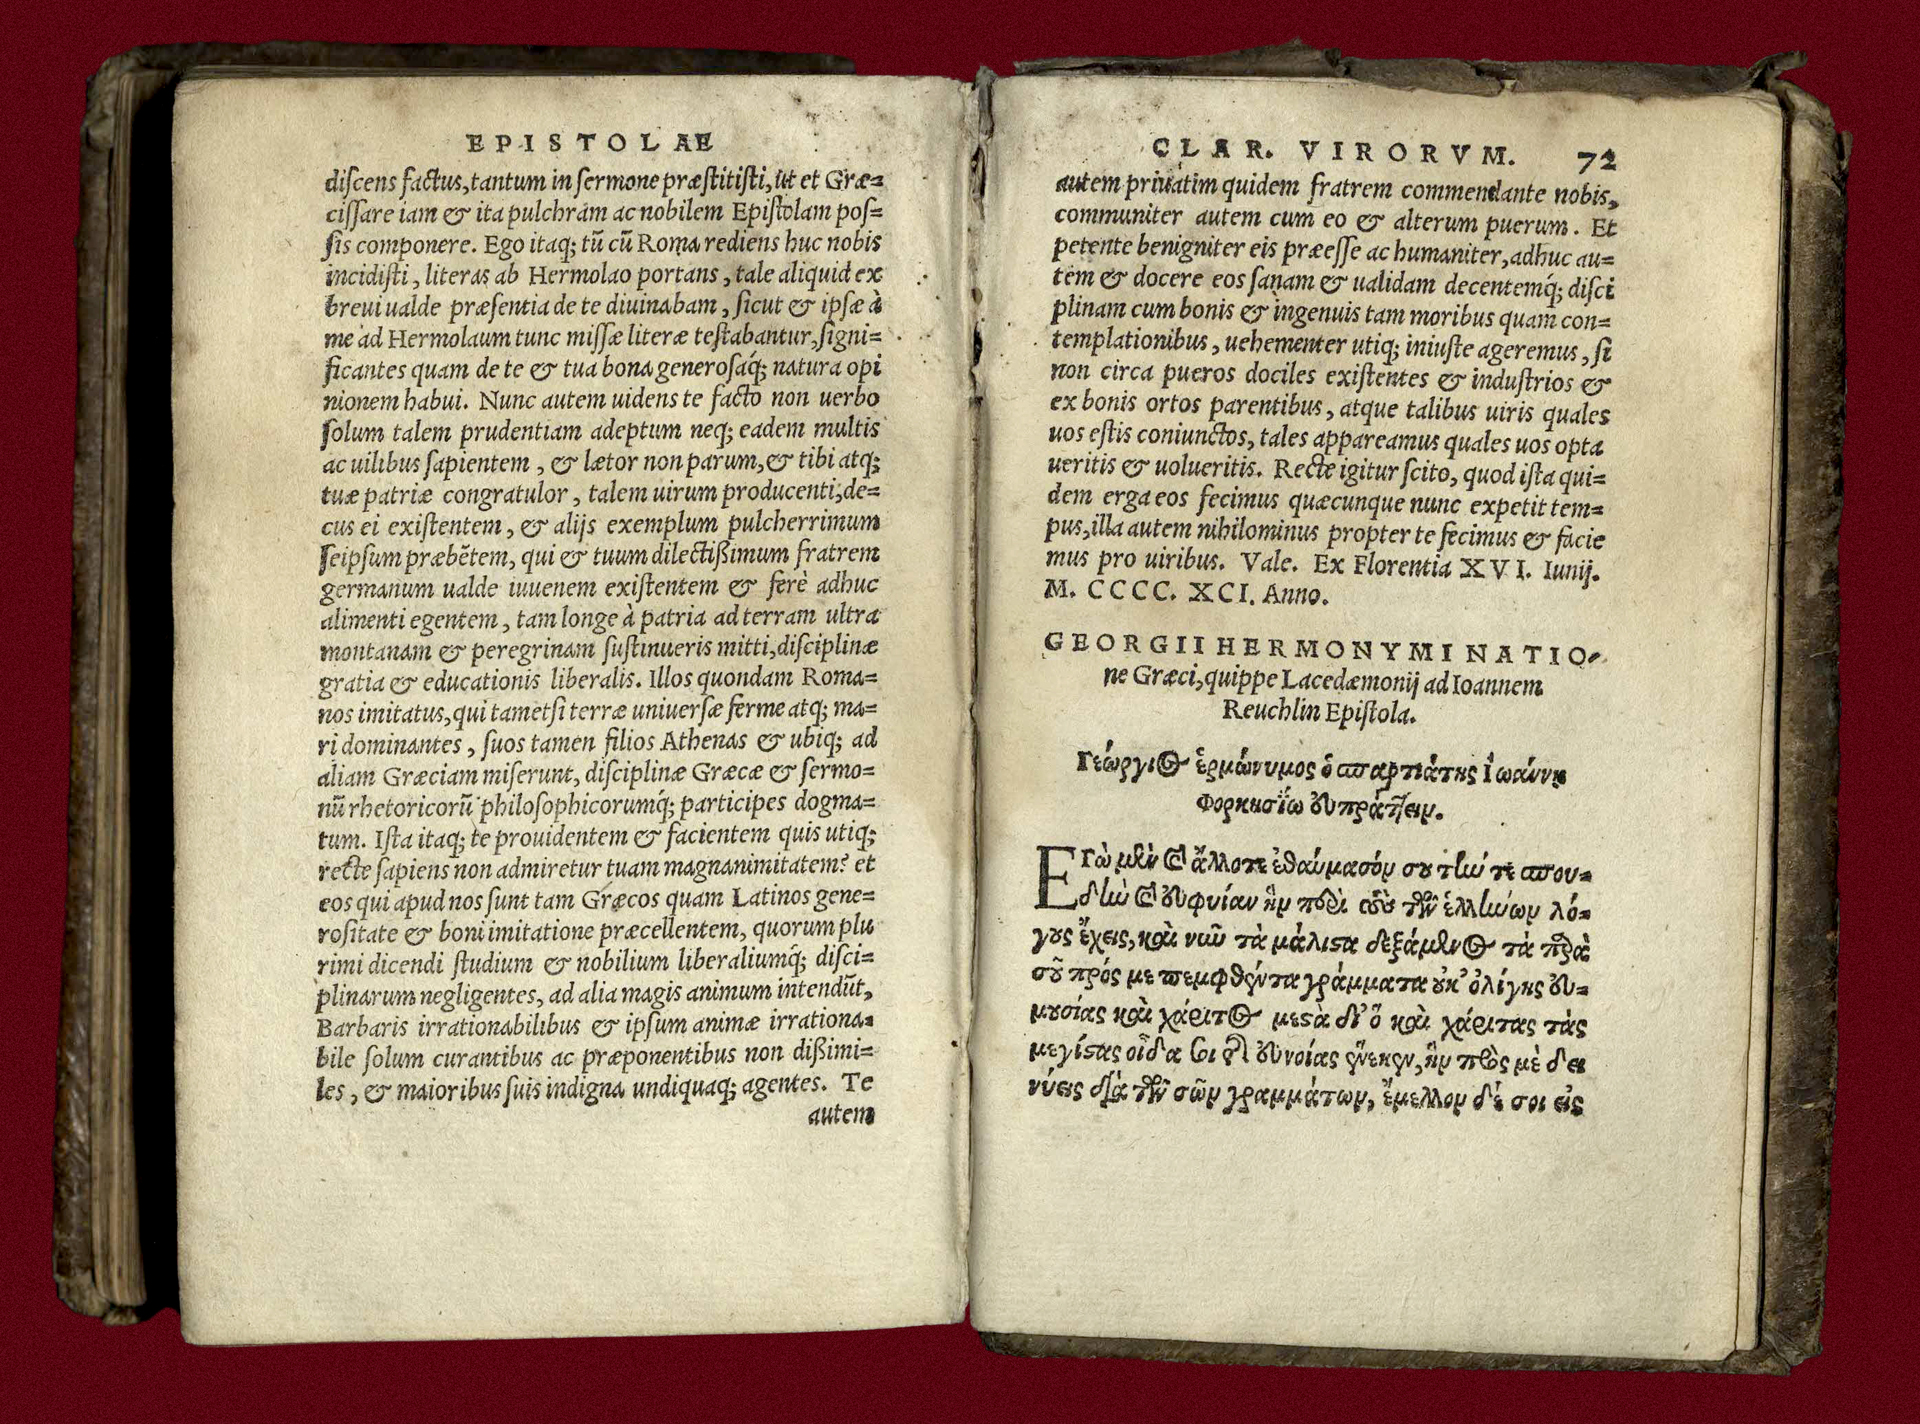 EPISTOLAE
discens factus, tantum in sermone præstitisti, ut et Græ=
cissare iam & ita pulchram ac nobilem Epistolam pos=
sis componere. Ego itaq; tũ cũ Roma rediens huc nobis
incidisti, literas ab Hermolao portans, tale aliquid ex
breui ualde præsentia de te diuinabam, sicut & ipsæ à
me ad Hermolaum tunc missæ literæ testabantur, signi=
ficantes quam de te & tua bona generosáq; natura opi
nionem habui. Nunc autem uidens te facto non uerbo
solum talem prudentiam adeptum neq; eadem multis
ac uilibus sapientem, & lætor non parum, & tibi atq;
tuæ patriæ congratulor, talem uirum producenti, de=
cus ei existentem, & alijs exemplum pulcherrimum
seipsum præbẽtem, qui & tuum dilectißimum fratrem
germanum ualde iuuenem existentem & ferè adhuc
alimenti egentem, tam longe à patria ad terram ultra
montanam & peregrinam sustinueris mitti, disciplinæ
gratia & educationis liberalis. Illos quondam Roma=
nos imitatus, qui tametsi terræ uniuersæ ferme atq; ma=
ri dominantes, suos tamen filios Athenas & ubiq; ad
aliam Græciam miserunt, disciplinæ Græcæ & sermo=
nũ rhetoricorũ philosophicorumq́; participes dogma=
tum. Ista itaq; te prouidentem & facientem quis utiq;
recte sapiens non admiretur tuam magnanimitatem? et
eos qui apud nos sunt tam Græcos quam Latinos gene=
rositate & boni imitatione præcellentem, quorum plu
rimi dicendi studium & nobilium liberaliumq́; disci=
plinarum negligentes, ad alia magis animum intendũt,
Barbaris irrationabilibus & ipsum animæ irrationa=
bile solum curantibus ac præponentibus non dißimi=
les, & maioribus suis indigna undiquaq; agentes. Te
autem
CLAR. VIRORVM. 72
autem priuatim quidem fratrem commendante nobis,
communiter autem cum eo & alterum puerum. Et
petente benigniter eis præesse ac humaniter, adhuc au=
tem & docere eos sanam & ualidam decentemq́; disci
plinam cum bonis & ingenuis tam moribus quam con=
templationibus, uehementer utiq; iniuste ageremus, si
non circa pueros dociles existentes & industrios &
ex bonis ortos parentibus, atque talibus uiris quales
uos estis coniunctos, tales appareamus quales uos opta
ueritis & uolueritis. Recte igitur scito, quod ista qui=
dem erga eos fecimus quæcunque nunc expetit tem=
pus, illa autem nihilominus propter te fecimus & facie
mus pro uiribus. Vale. Ex Florentia XVI. Iunij.
M. CCCC. XCI. Anno.
GEORGII HERMONYMI NATIO=
ne Græci, quippe Lacedæmonij ad Ioannem
Reuchlin Epistola.
Γεώργιος ἑρμώνυμος ὁ σπαρτιάτης ἰωάννῃ
Φορκησίῳ εὐπράττειν.
Εγὼ μὲν καὶ ἄλλοτε ἐθαύμασόν σου τὴν τε σπου=
δὴν καὶ εὐφυΐαν ἣν περὶ τοὺς τῶν ἑλλήνων λό=
γους ἔχεις, καὶ νῦν τὰ μάλιστα δεξάμενος τὰ παρὰ
σοῦ πρός με πεμφθέντα γράμματα οὐκ ὀλίγης εὐ=
μουσίας καὶ χάριτος μεστὰ δι' ὃ καὶ χάριτας τὰς
μεγίστας οἶδά σοι τῆς εὐνοίας ἕνεκεν, ἣν πρὸς μὲ δει
νύεις διὰ τῶν σῶν γραμμάτων, ἔμελλον δέ σοι εἰς